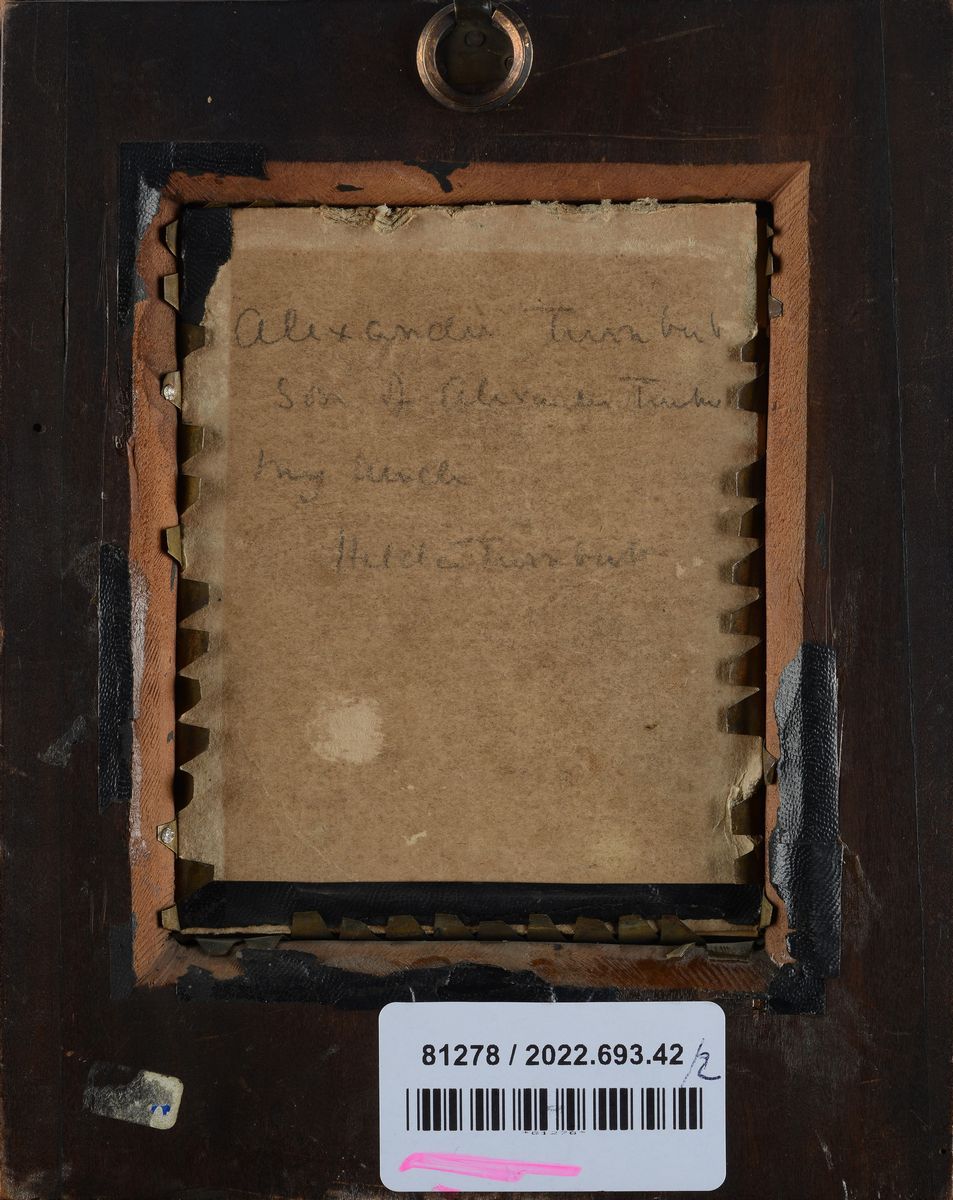 Alexander Turnbull
Son of Alexander Turnbull
My Uncle
Hilda Turnbull
81278 / 2022.693.42/2
*81278*